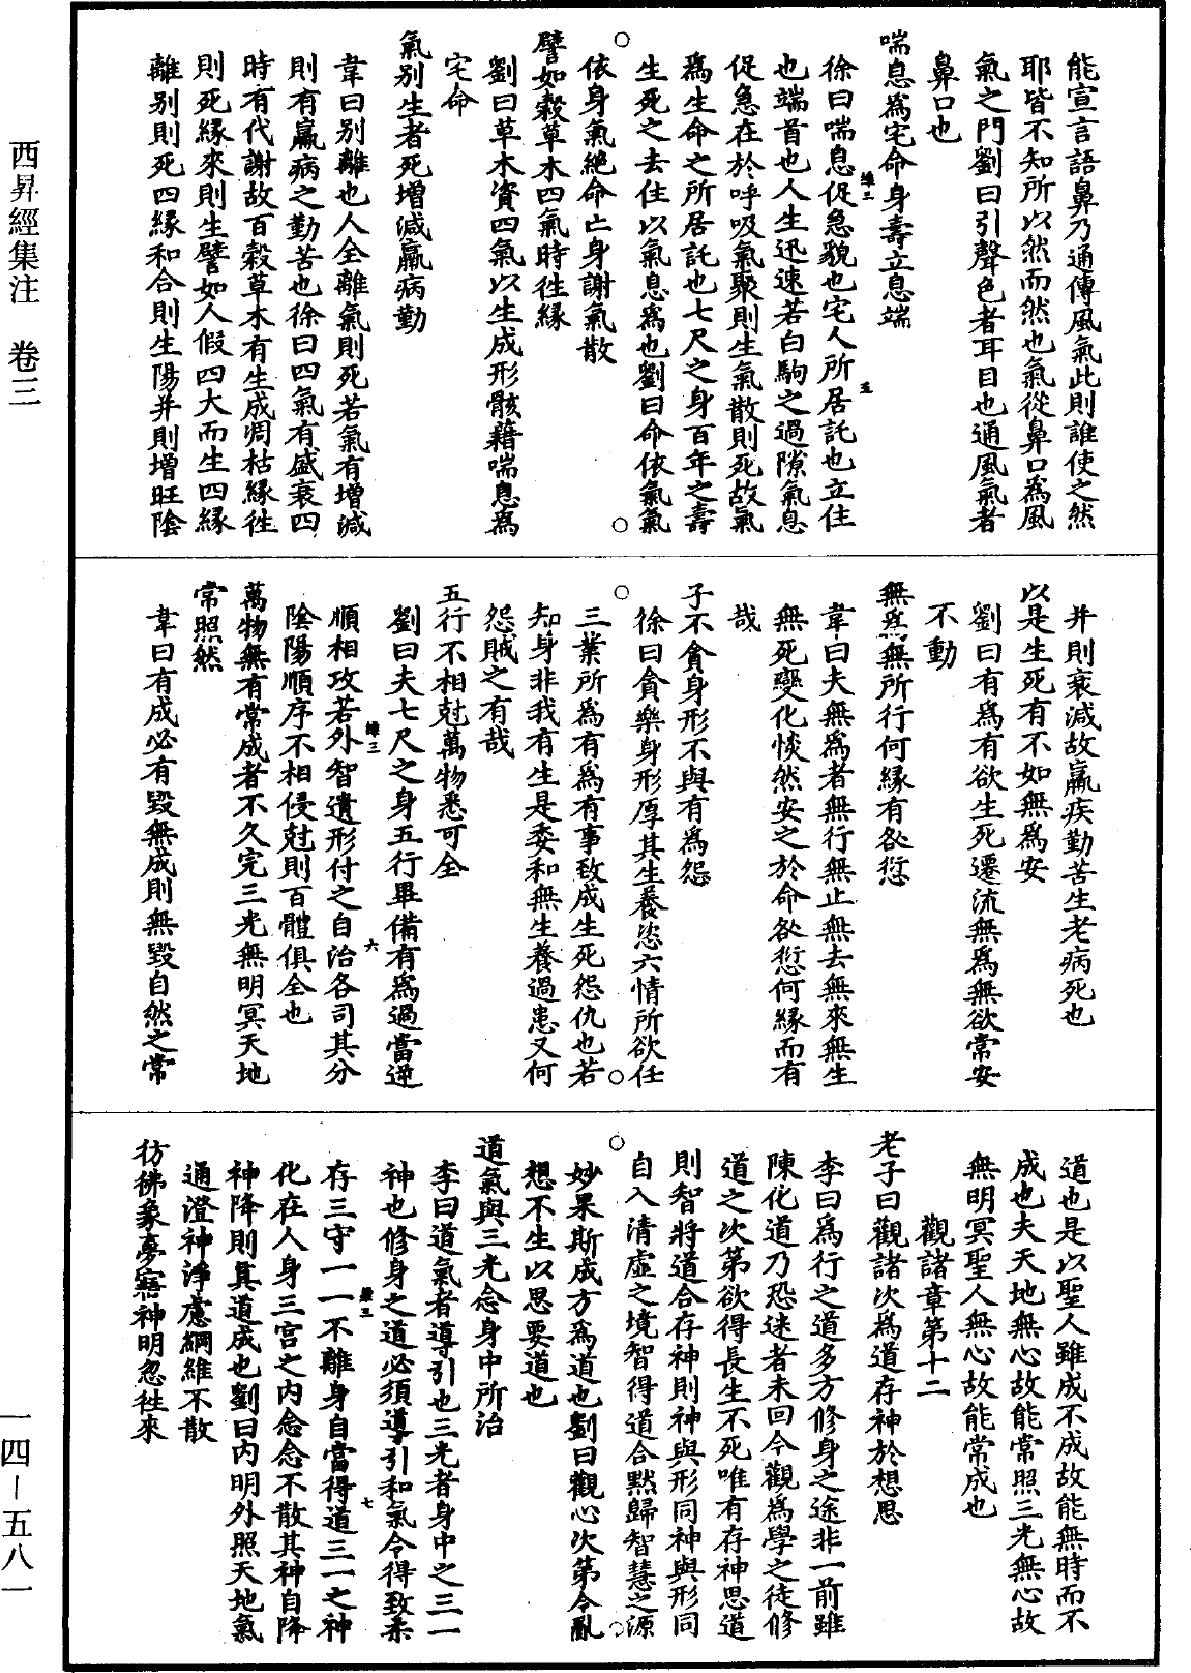 西昇經集注　卷三
一四—五八一
能宣言語鼻乃通傳風氣此則誰使之然
耶皆不知所以然而然也氣從鼻口為風
氣之門劉曰引聲色者耳目也通風氣者
鼻口也
喘息為宅命身壽立息端
徐曰喘息促急貌也宅人所居託也立住
也端首也人生迅速若白駒之過隙氣息
促急在於呼吸氣聚則生氣散則死故氣
為生命之所居託也七尺之身百年之壽
生死之去住以氣息為也劉曰命依氣氣
依身氣絕命亡身謝氣散
譬如穀草木四氣時往緣
劉曰草木資四氣以生成形骸藉喘息為
宅命
氣別生者死增減羸病勤
韋曰別離也人全離氣則死若氣有增減
則有羸病之勤苦也徐曰四氣有盛衰四
時有代謝故百穀草木有生成凋枯緣往
則死緣來則生譬如人假四大而生四緣
離別則死四緣和合則生陽并則增旺陰
并則衰減故羸疾勤苦生老病死也
以是生死有不如無為安
劉曰有為有欲生死遷流無為無欲常安
不動
無為無所行何緣有咎愆
韋曰夫無為者無行無止無去無來無生
無死變化惔然安之於命咎愆何緣而有
哉
子不貪身形不與有為怨
徐曰貪樂身形厚其生養恣六情所欲任
三業所為有為有事致成生死怨仇也若
知身非我有生是委和無生養過患又何
怨賊之有哉
五行不相尅萬物悉可全
劉曰夫七尺之身五行畢備有為過當逆
順相攻若外智遺形付之自治各司其分
陰陽順序不相侵尅則百體俱全也
萬物無有常成者不久完三光無明冥天地
常照然
韋曰有成必有毀無成則無毀自然之常
道也是以聖人雖成不成故能無時而不
成也夫天地無心故能常照三光無心故
無明冥聖人無心故能常成也
觀諸章第十二
老子曰觀諸次為道存神於想思
李曰為行之道多方修身之途非一前雖
陳化道乃恐迷者未回今觀為學之徒修
道之次第欲得長生不死唯有存神思道
則智將道合存神則神與形同神與形同
自入清虛之境智得道合默歸智慧之源
妙果斯成方為道也劉曰觀心次第令亂
想不生以思要道也
道氣與三光念身中所治
李曰道氣者導引也三光者身中之三一
神也修身之道必須導引和氣令得致柔
存三守一一不離身自當得道三一之神
化在人身三宮之內念念不散其神自降
神降則真道成也劉曰內明外照天地氣
通澄神淨慮綱維不散
彷彿象夢寤神明忽往來